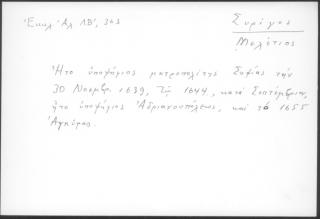 Ἐκκλ Ἀλ ΛΒ', 363
Συρίγος
Μελέτιος
Ἦτο ὑποψήφιος μητροπολίτης Σοφίας τὴν
30 Νοεμβρ. 1639, Τῷ 1644, κατὰ Σεπτέμβριον,
ἦτο ὑποψήφιος Ἀδριανουπόλεως, καὶ τὸ 1655
Ἀγκύρας.